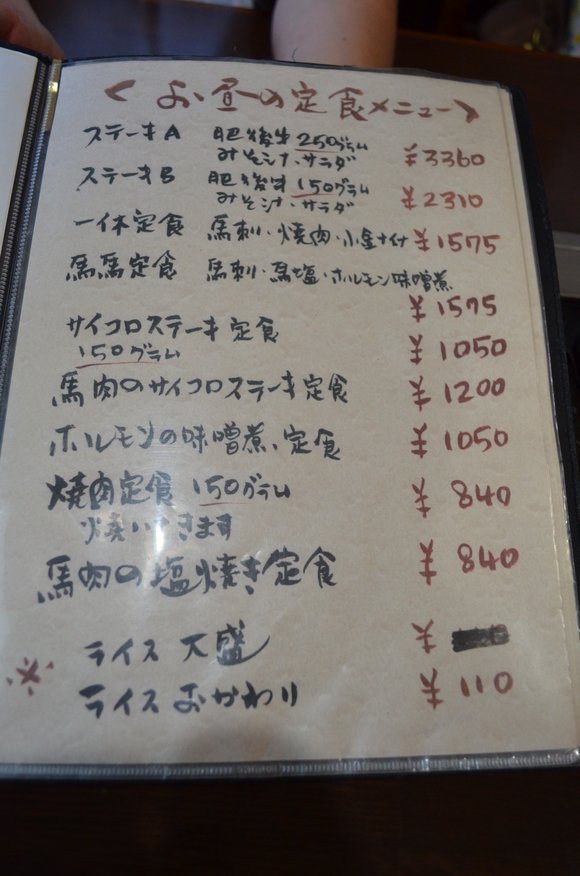 ＜お昼の定食メニュー＞
ステーキA 肥後牛250グラム
みそ汁、サラダ ¥3360
ステーキB 肥後牛150グラム
みそ汁、サラダ ¥2310
一休定食 馬刺・焼肉・小金付 ¥1575
馬馬定食 馬刺・馬塩・ホルモン味噌煮
¥1575
サイコロステーキ定食
150グラム ¥1050
馬肉のサイコロステーキ定食 ¥1200
ホルモンの味噌煮、定食 ¥1050
焼肉定食 150グラム ¥840
焼いてきます
馬肉の塩焼き定食 ¥840
ライス 大盛 ¥
※ ライス おかわり ¥110